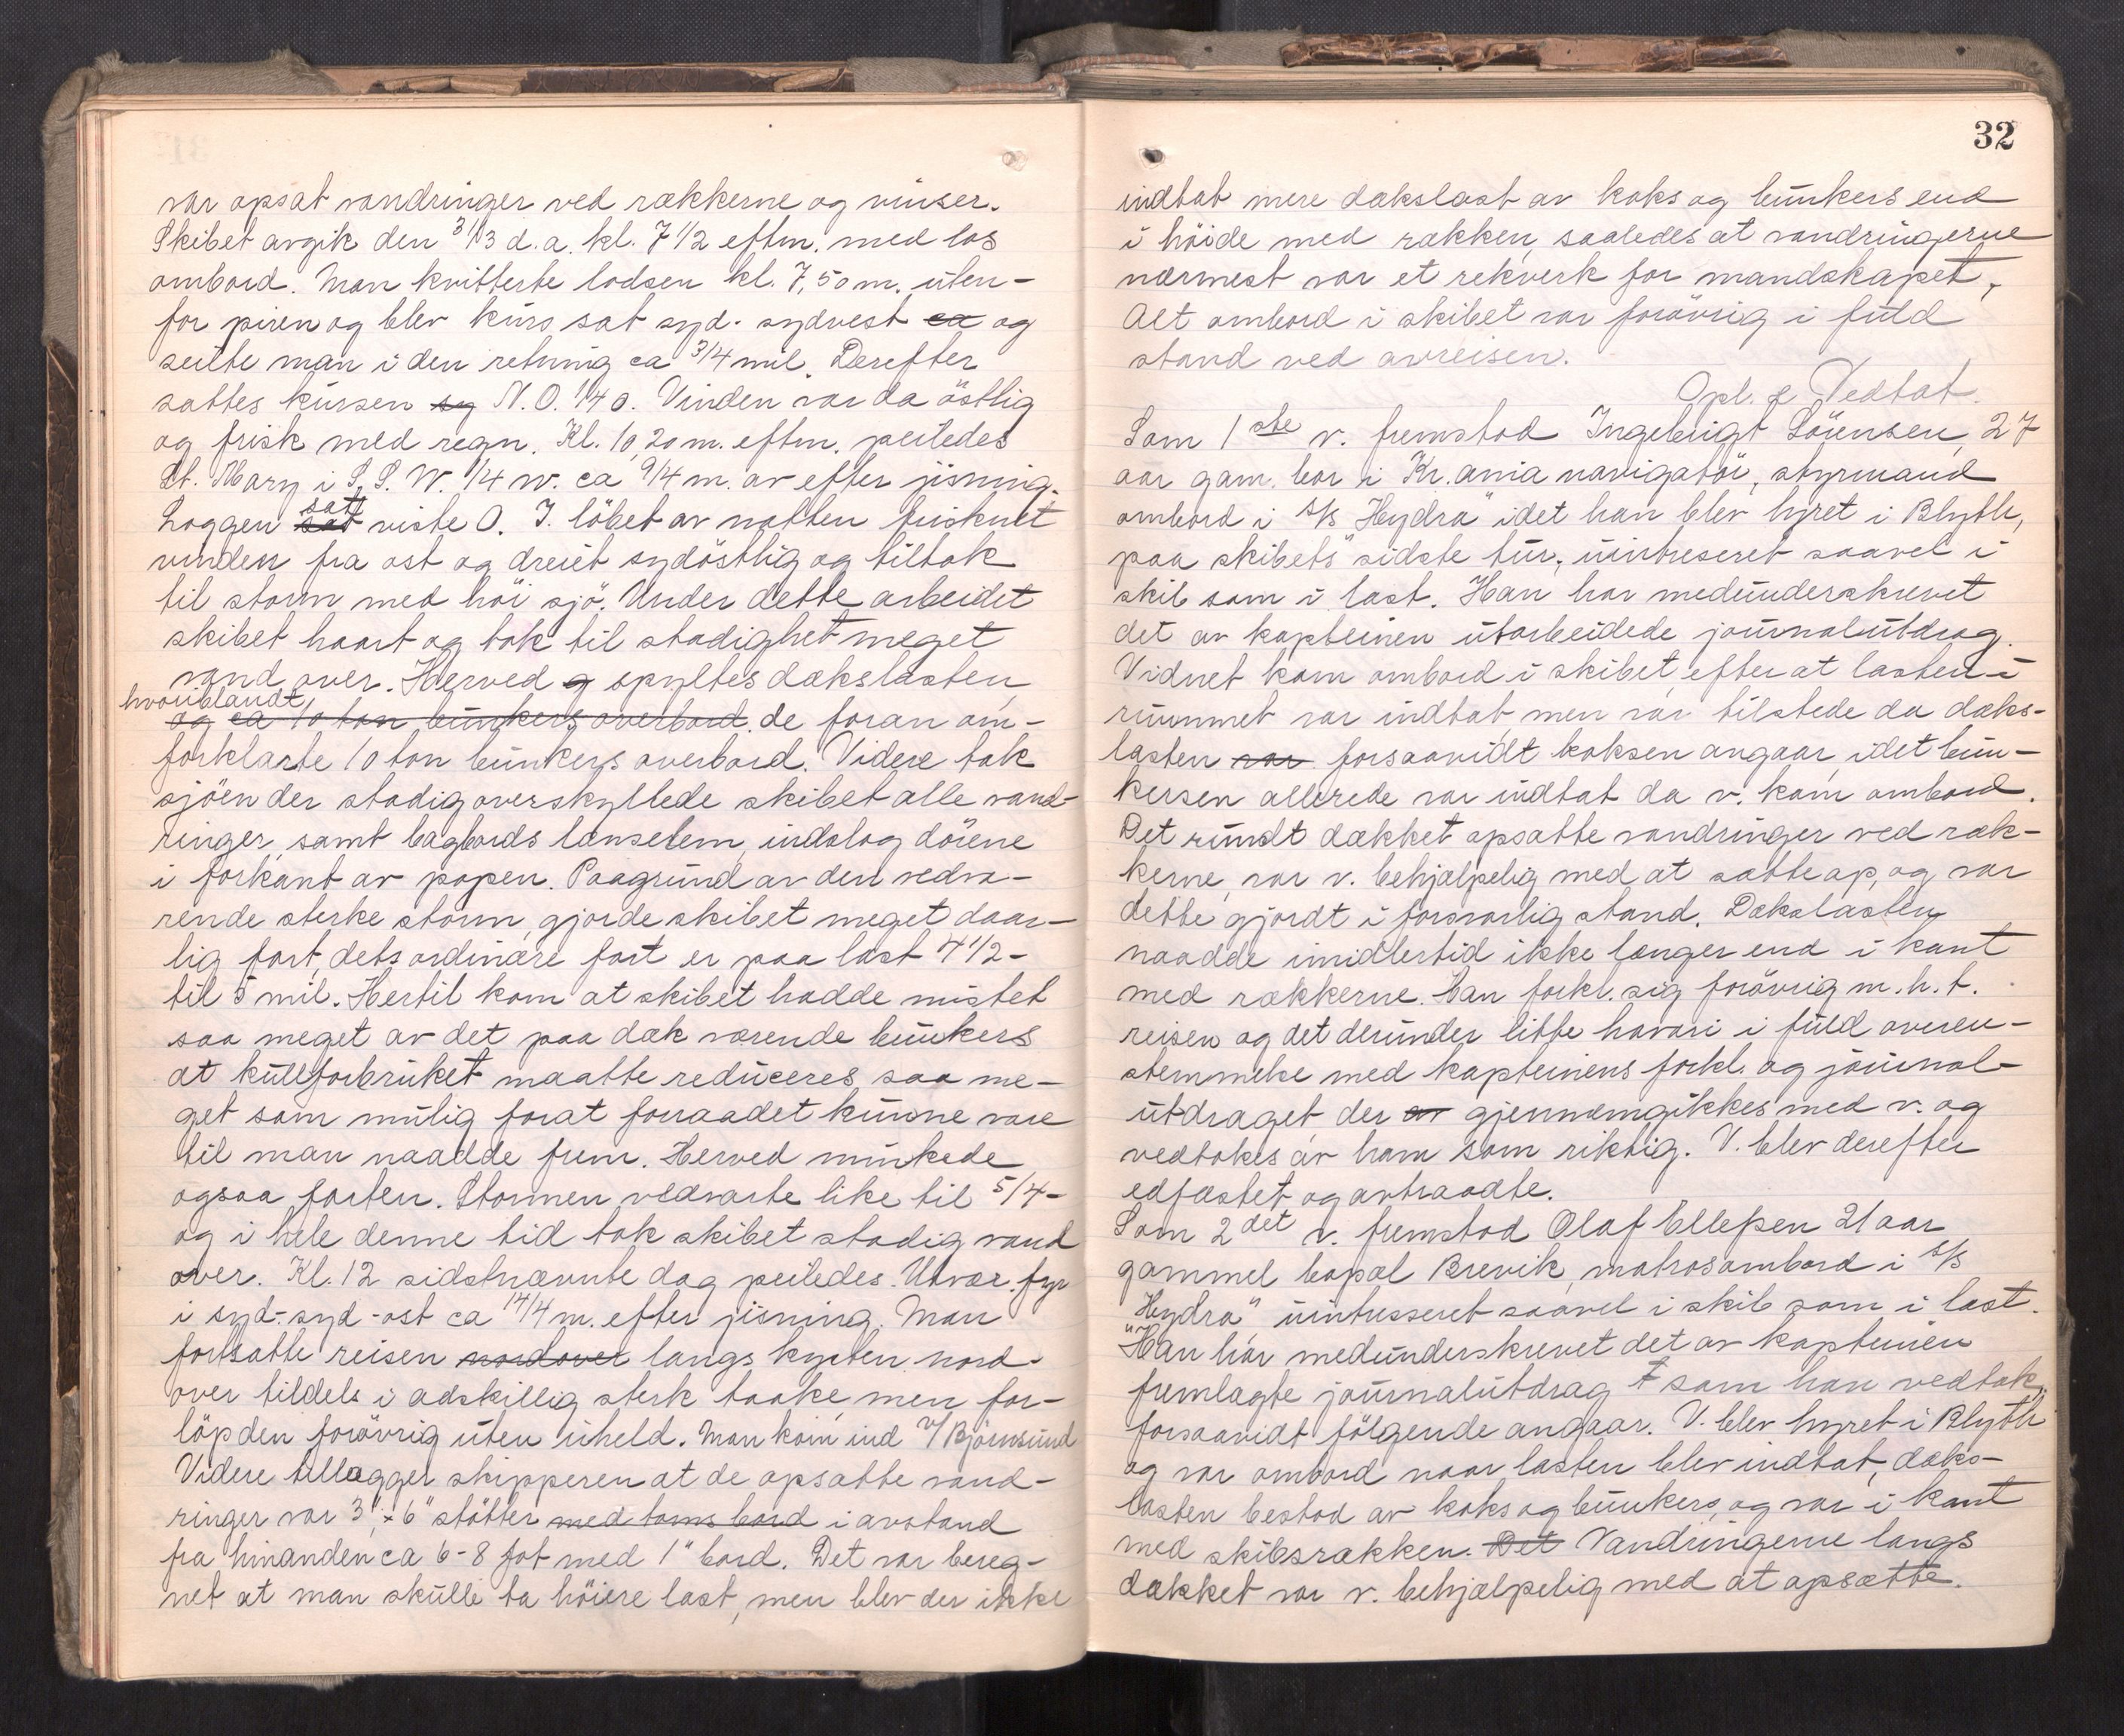 var opsat vandringer ved rækkerne og vinser.
Skibet avgik den 31/3 d.a. kl. 7 1/2 eftm. med los
ombord. Man kvitterte lodsen kl. 7,50 m. uten-
for piren og blev kurs sat syd-sydvest ca og
seilte man i den retning ca 3/4 mil. Derefter
sattes kursen sy N.O. 1/4 o. Vinden var da östlig
og frisk med regn. Kl. 10,20 m. eftm. peiledes
St. Mary i S.S.W. 1/4 w. ca 9/4 m. av efter jisning.
Loggen sat sat viste O. I. löbet av natten frisknet
vinden fra ost og dreiet sydöstlig og tiltok
til storm med höi sjö. Under dette arbeidet
skibet haart og tok til stadighet meget
vand over. Herved og spyltes dækslasten,
hvoriblandt
og ca 10 ton bunkers overbord. de foran om-
forklarte 10 ton bunkers overbord. Videre tok
sjöen der stadig overskyllede skibet alle vand-
ringer, samt bagbords lænselem, indslog dörene
i forkant av popen. Paagrund av den vedva-
rende sterke storm, gjorde skibet meget daar-
lig fart, dets ordinære fart er paa last 4 1/2-
til 5 mil. Hertil kom at skibet hadde mistet
saa meget av det paa dæk værende bunkers
at kullforbruket maatte reduceres saa me-
get som mulig forat forraadet kunne vare
til man naadde frem. Herved minkede
ogsaa farten. Stormen vedvarte like til 5/4-
og i hele denne tid tok skibet stadig vand
over. Kl. 12 sidstnævnte dag peiledes Utvær fyr
i syd-syd-ost ca 14/4 m. efter jisning. Man
fortsatte reisen nordover langs kysten nord-
over tildels i adskillig sterk taake, men for-
löp den forövrig uten uheld. Man kom ind v/ Björnsund
Videre tillægger skipperen at de opsatte vand-
ringer var 3" x 6" stötter med toms bord i avstand
fra hinanden ca 6-8 fot med 1" bord. Det var bereg-
net at man skulle ta höiere last, men blev der ikke
32
indtat mere dækslast av koks og bunkers end
i höide med rækken, saaledes at vandringerne
nærmest var et rekverk for mandskapet,
Alt ombord i skibet var forövrig i fuld
stand ved avreisen.
Opl. & Vedtat.
Som 1ste v. fremstod Ingebrigt Sörensen, 27
aar gam. bor i Kr.ania navigatör, styrmand
ombord i s/s "Hydra" idet han blev hyret i Blyth,
paa skibets sidste tur, uintreseret saavel i
skib som i last. Han har medunderskrevet
det av kapteinen utarbeidede journalutdrag.
Vidnet kom ombord i skibet, efter at lasten i
rummet var indtat, men var tilstede da dæks-
lasten var forsaavidt koksen angaar, idet bun-
kersen allerede var indtat da v. kom ombord.
Det rundt dækket opsatte vandringer ved ræk-
kerne, var v. behjælpelig med at satte op, og var
dette gjordt i forsvarlig stand. Dækslasten
naadde imidlertid ikke længer end i kant
med rækkerne. Han forkl. sig forövrig m.h.t.
reisen og det derunder litte havari i fuld overen-
stemmelse med kapteinens forkl. og journal-
utdraget, der av gjennemgikkes med v. og
vedtokes av ham som riktig. V. blev derefter
edfæstet og avtraadte.
Som 2det v. fremstod Olaf Ellefsen 21 aar
gammel bopæl Brevik, matros ombord i s/s
"Hydra" uintresseret saavel i skib som i last.
Han har medunderskrevet det av kapteinen
fremlagte journalutdrag som han vedtok,
forsaavidt fölgende angaar. V. blev hyret i Blyth
og var ombord naar lasten blev indtat, dæks-
lasten bestod av koks og bunkers, og var i kant
med skibsrækken. Det Vandringerne langs
dækket var v. behjælpelig med at opsætte.